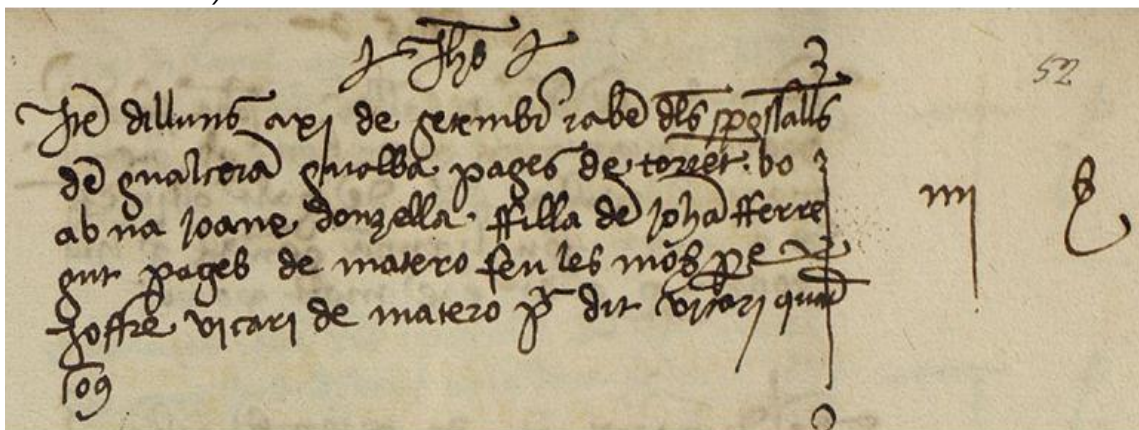 Jhs
52
Ite dilluns a xj de setembr rabe dls sposalls
de gualcera gualba pages de torret bo
ab na joane donzella filla de joha fferre
gut pages de matero feu les mos pe
Joffre vicari de matero p dit vicari
iiij s